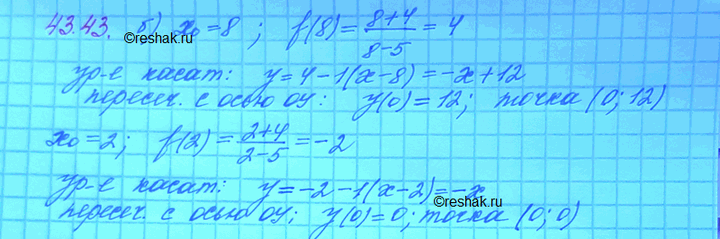 43.43. б) x₀ = 8 ; f(8) = (8+4)/(8-5) = 4
©reshak.ru
ур-е касат: y = 4 - 1(x - 8) = -x + 12
пересеч. с осью оу: y(0) = 12; точка (0; 12)
x₀ = 2; f(2) = (2+4)/(2-5) = -2
ур-е касат: y = -2 - 1(x - 2) = -x
пересеч. с осью оу; y(0) = 0; точка (0; 0)
©reshak.ru